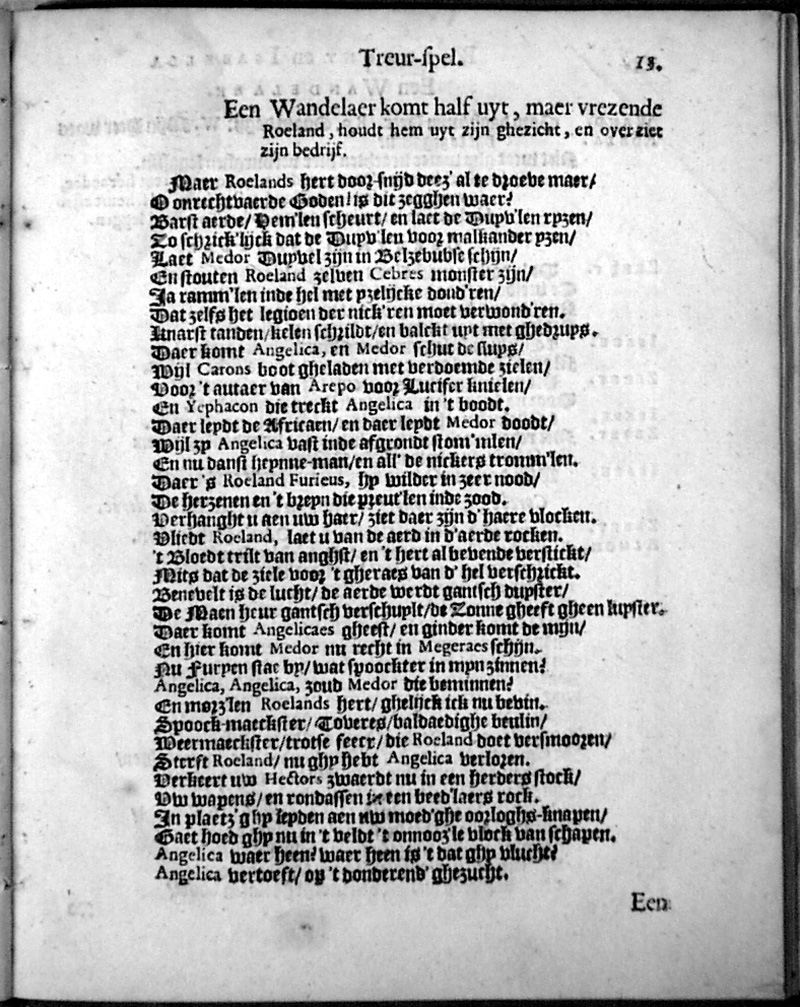 Treur-spel. 13.
Een Wandelaer komt half uyt, maer vrezende
Roeland, houdt hem uyt zijn ghezicht, en overziet
zijn bedrijf.
Maer Roelands hert door-snijd deez' al te droeve maer/
O onrechtvaerde Goden! is dit zegghen waer?
Barst aerde/ Hem'len scheurt/ en laet de Duyv'len ryzen/
Zo schrick'lijck dat de Duyv'len voor malkander yzen/
Laet Medor Duyvel zijn in Belzebubse schijn/
En stouten Roeland zelven Cebres monster zijn/
Ja ramm'len inde hel met yzelijcke dond'ren/
Dat zelfs het legioen der nick'ren moet verwond'ren.
Knarst tanden/kelen schrildt/en balckt uyt met ghedruys.
Daer komt Angelica, en Medor schut de sluys/
Wijl Carons boot gheladen met verdoemde zielen/
Voor 't autaer van Arepo voor Lucifer knielen/
En Yephacon die treckt Angelica in 't boodt.
Daer leydt de Africaen/ en daer leydt Medor doodt/
Wijl zy Angelica vast inde afgrondt stom'mlen/
En nu danst heynne-man/en all' de nickers tromm'len.
Daer 's Roeland Furieus, hy wilder in zeer nood/
De herzenen en 't breyn die preut'len inde zood.
Verhanght u aen uw haer/ ziet daer zijn d' haere vlocken.
Vliedt Roeland, laet u van de aerd in d'aerde rocken.
't Bloedt trilt van anghst/ en 't hert al bevende verstickt/
Mits dat de ziele voor 't gheraes van d' hel verschrickt.
Benevelt is de lucht/ de aerde werdt gantsch duyster/
De Maen heur gantsch verschuylt/de Zonne gheeft gheen luyster.
Daer komt Angelicaes gheest/ en ginder komt de mijn/
En hier komt Medor nu recht in Megeraes schijn.
Nu Furyen stae by/ wat spoockter in myn zinnen?
Angelica, Angelica, zoud Medor die beminnen?
En morz'len Roelands hert/ ghelijck ick nu bevin.
Spoock-maeckster/ Toveres/baldaedighe beulin/
Weermaeckster/trotse feecx/die Roeland doet versmooren/
Sterft Roeland/ nu ghy hebt Angelica verloren.
Verkeert uw Hectors zwaerdt nu in een herders stock/
Uw wapens/ en rondassen in een beed'laers rock.
In plaetz' ghy leyden aen uw moed'ghe oorloghs-knapen/
Gaet hoed ghy nu in 't veldt 't onnooz'le vlock van schapen.
Angelica waer heen? waer heen is 't dat ghy vlucht?
Angelica vertoeft/ op 't donderend' ghezucht.
Een